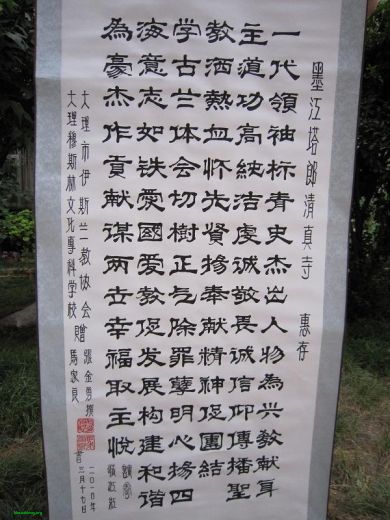 墨江塔郎清真寺 惠存
一代領袖标青史杰出人物為兴教献身
主道功高純洁虔诚敬畏诚信仰傳播聖
教洒熱血怀先賢揚奉献精神促團結
学古兰体会切樹正气除罪孽明心揚四
海意志如铁愛國爱教促发展构建和谐
為豪杰作貢献謀两世幸福取主悦
大理市伊斯兰教协会
大理穆斯林文化專科学校
贈
張金勇撰
馬家良书
二〇一〇年
三月十七日